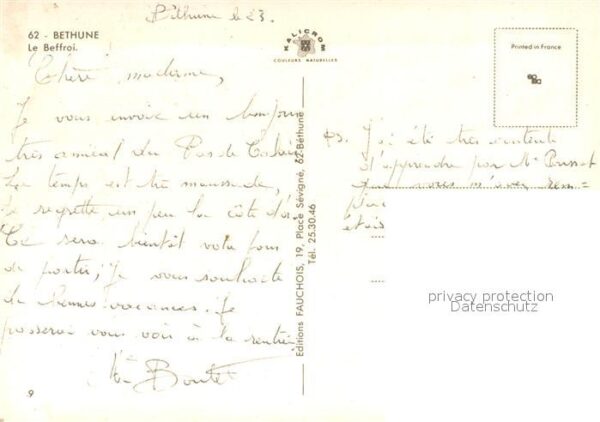 Béthune le 23.
62 - BETHUNE
Le Beffroi.
KALICROM
COULEURS NATURELLES
Printed in France
Chère madame,
Je vous envoie un bonjour
très amical du Pas de Calais
Le temps est très maussade,
Je regrette un peu la côte d'
Ce sera bientôt votre tour
de partir; Je vous souhaite
de bonnes vacances. Je
passerai vous voir à la rentrée
Boutet
PS. J'ai été très contente
d'apprendre par Mr
que vous m'avez rem=
étais
Editions FAUCHOIS, 19, Place Sévigné, 62-Béthune
Tél. 25.30.46
privacy protection
Datenschutz
9